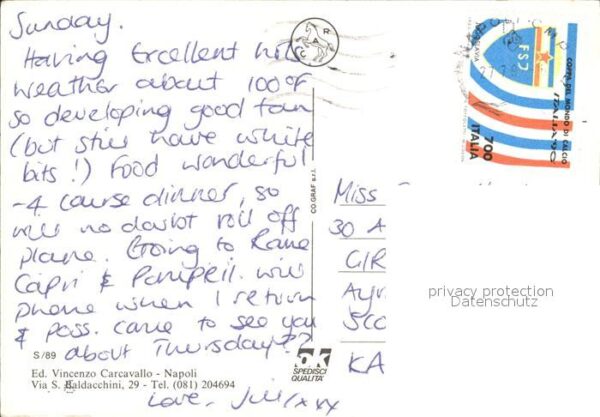 Sunday.
Having Excellent hols
weather about 100°F
so developing good tan
(but still have white
bits!) Food wonderful
- 4 course dinner, so
will no doubt roll off
plane. Going to Rome
Capri & Pompeii. will
phone when I return
& poss. come to see you
about Thursday??
Love, Jill xxx
S/89
Ed. Vincenzo Carcavallo - Napoli
Via S. Baldacchini, 29 - Tel. (081) 204694
5K
SPEDISCI
QUALITÀ
CO.GRAF s.r.l.
CRAG
FSJ
COPPA DEL MONDO DI CALCIO
ITALIA '90
700
ITALIA
Miss
30 A
GIR
Ayr
Sco
KA
privacy protection
Datenschutz